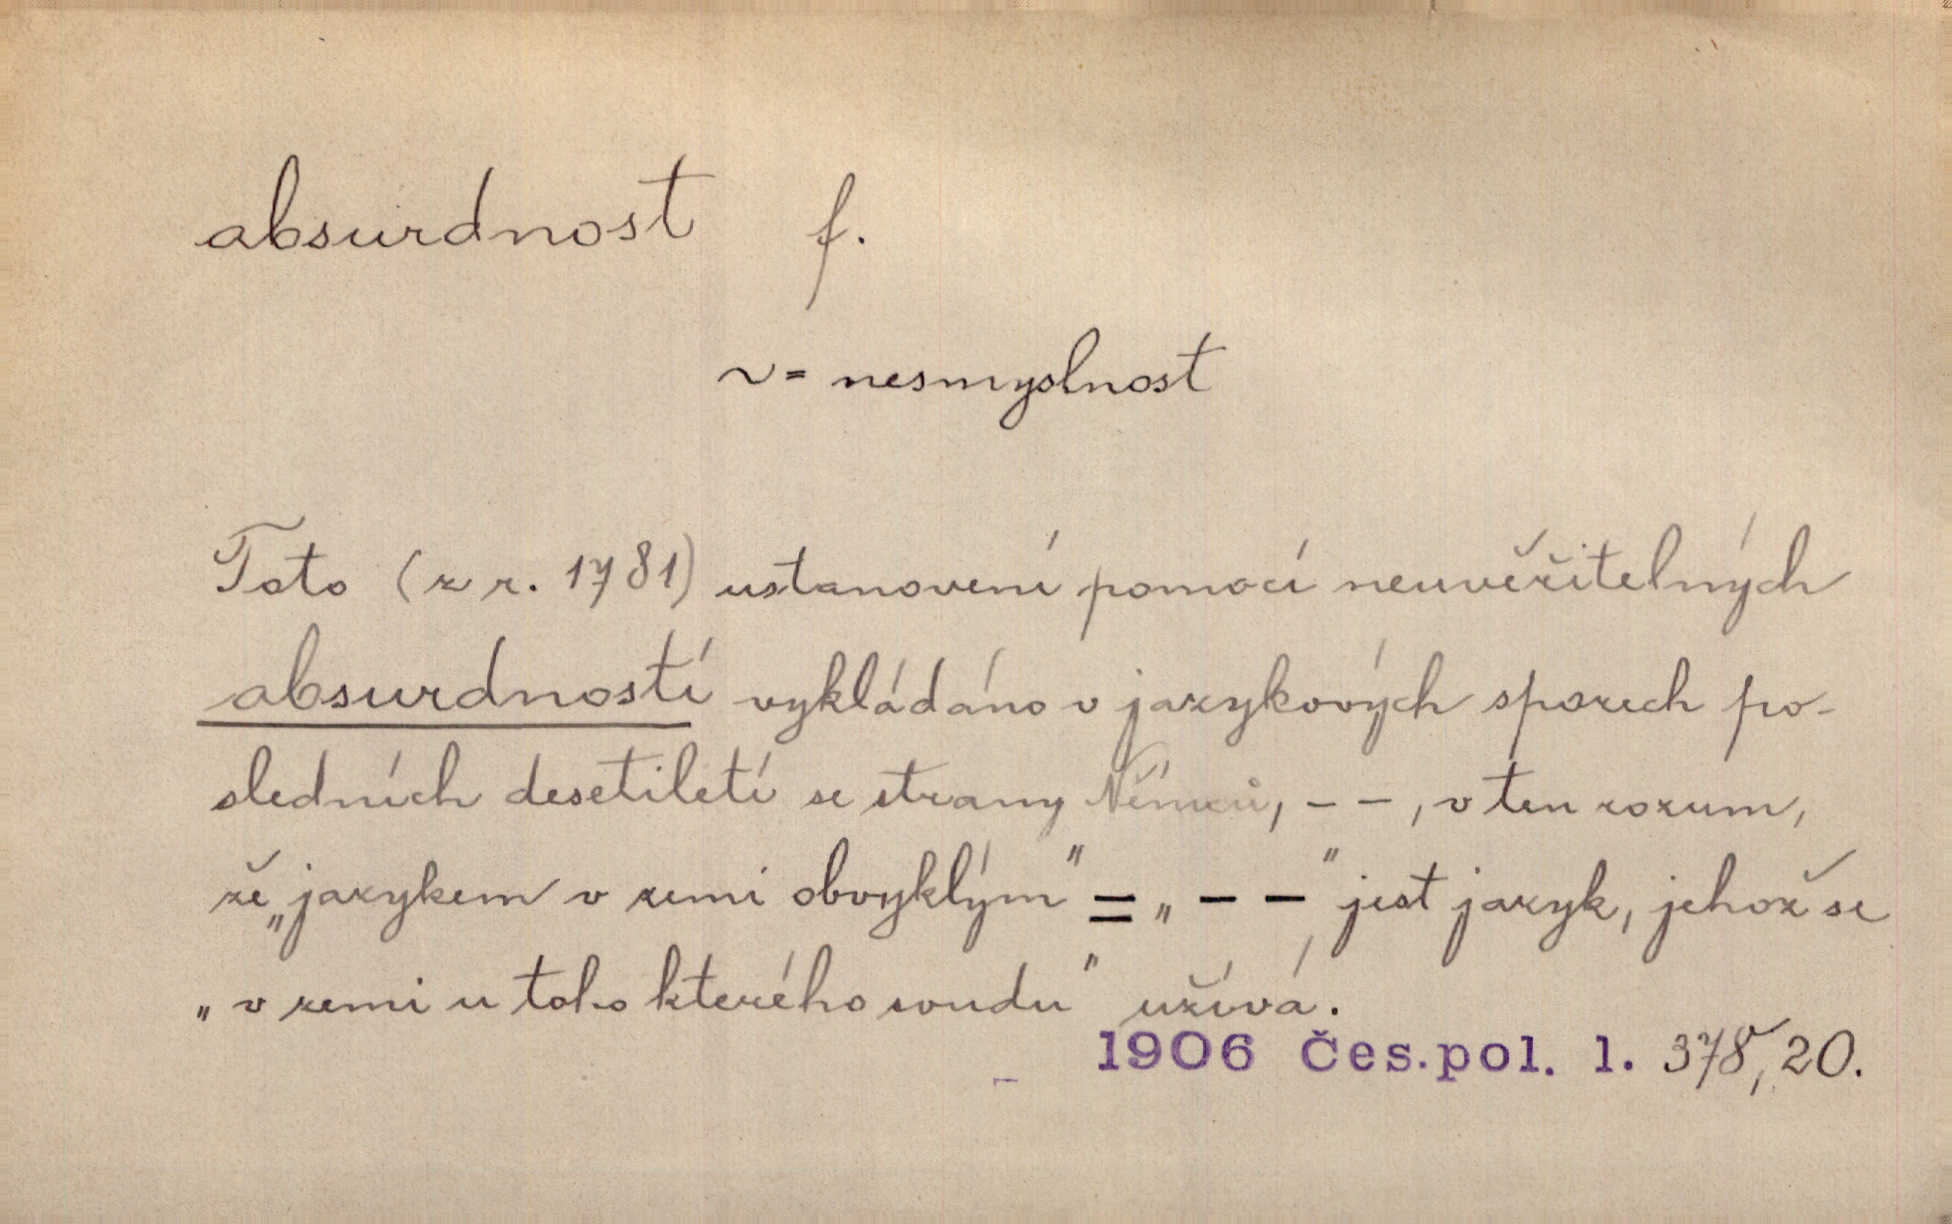 absurdnost f.
~ = nesmyslnost
Toto (z r. 1781) ustanovení pomocí neuvěřitelných
absurdností vykládáno v jazykových sporech po-
sledních desetiletí se strany Němců, – – , v ten rozum,
že „jazykem v zemi obvyklým" = „ – – " jest jazyk, jehož se
„v zemi u toho kterého soudu" užívá.
1906 Čes. pol. 1. 378, 20.